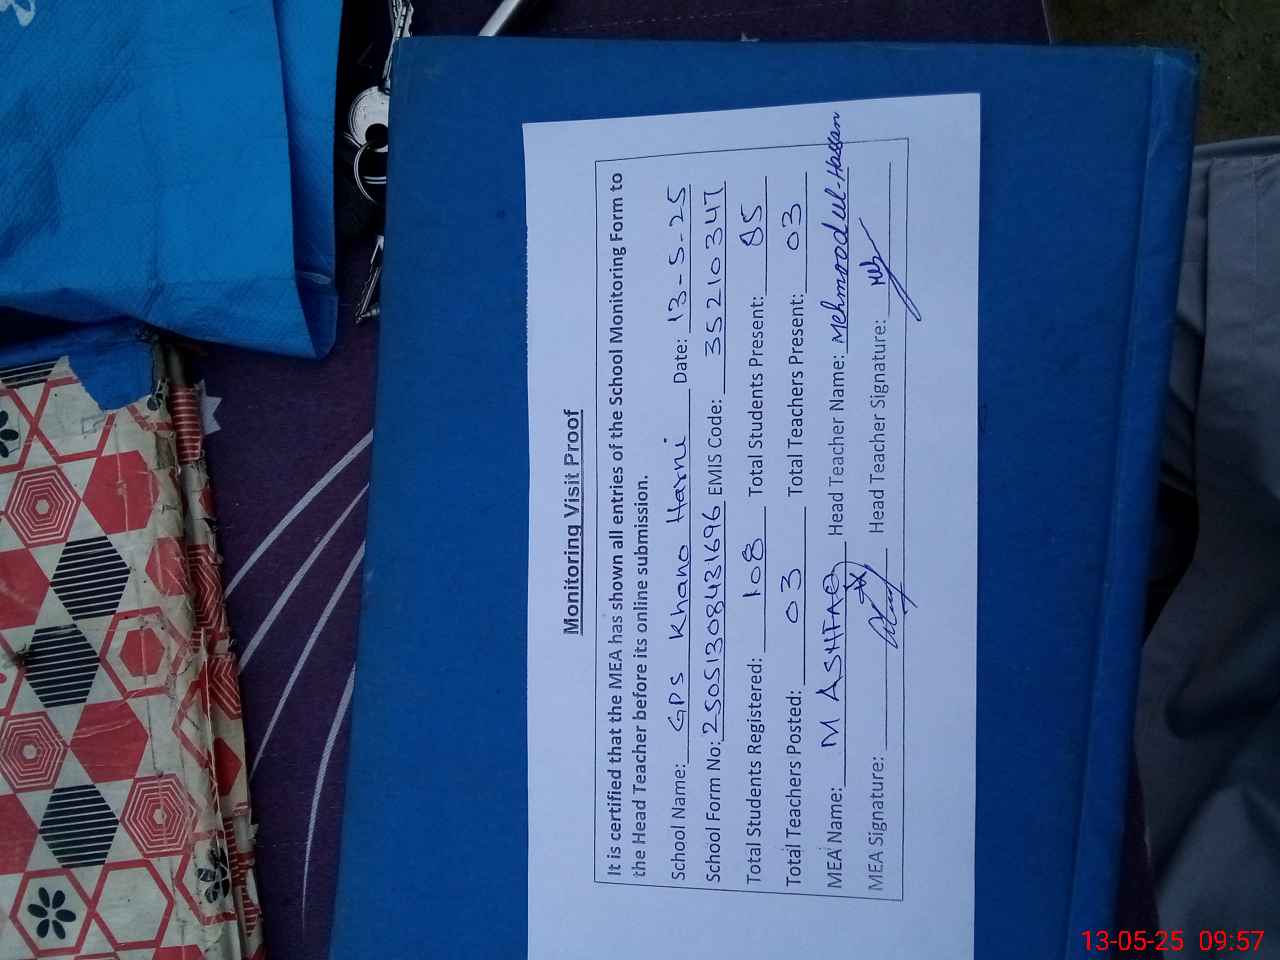 Monitoring Visit Proof
It is certified that the MEA has shown all entries of the School Monitoring Form to
the Head Teacher before its online submission.
School Name: GPS Khano Harni Date: 13-5-25
School Form No: 250513084831696 EMIS Code: 35210347
Total Students Registered: 108 Total Students Present: 85
Total Teachers Posted: 03 Total Teachers Present: 03
MEA Name: M ASHFAQ Head Teacher Name: Mehmood ul-Hassan
MEA Signature: Head Teacher Signature:
13-05-25 09:57